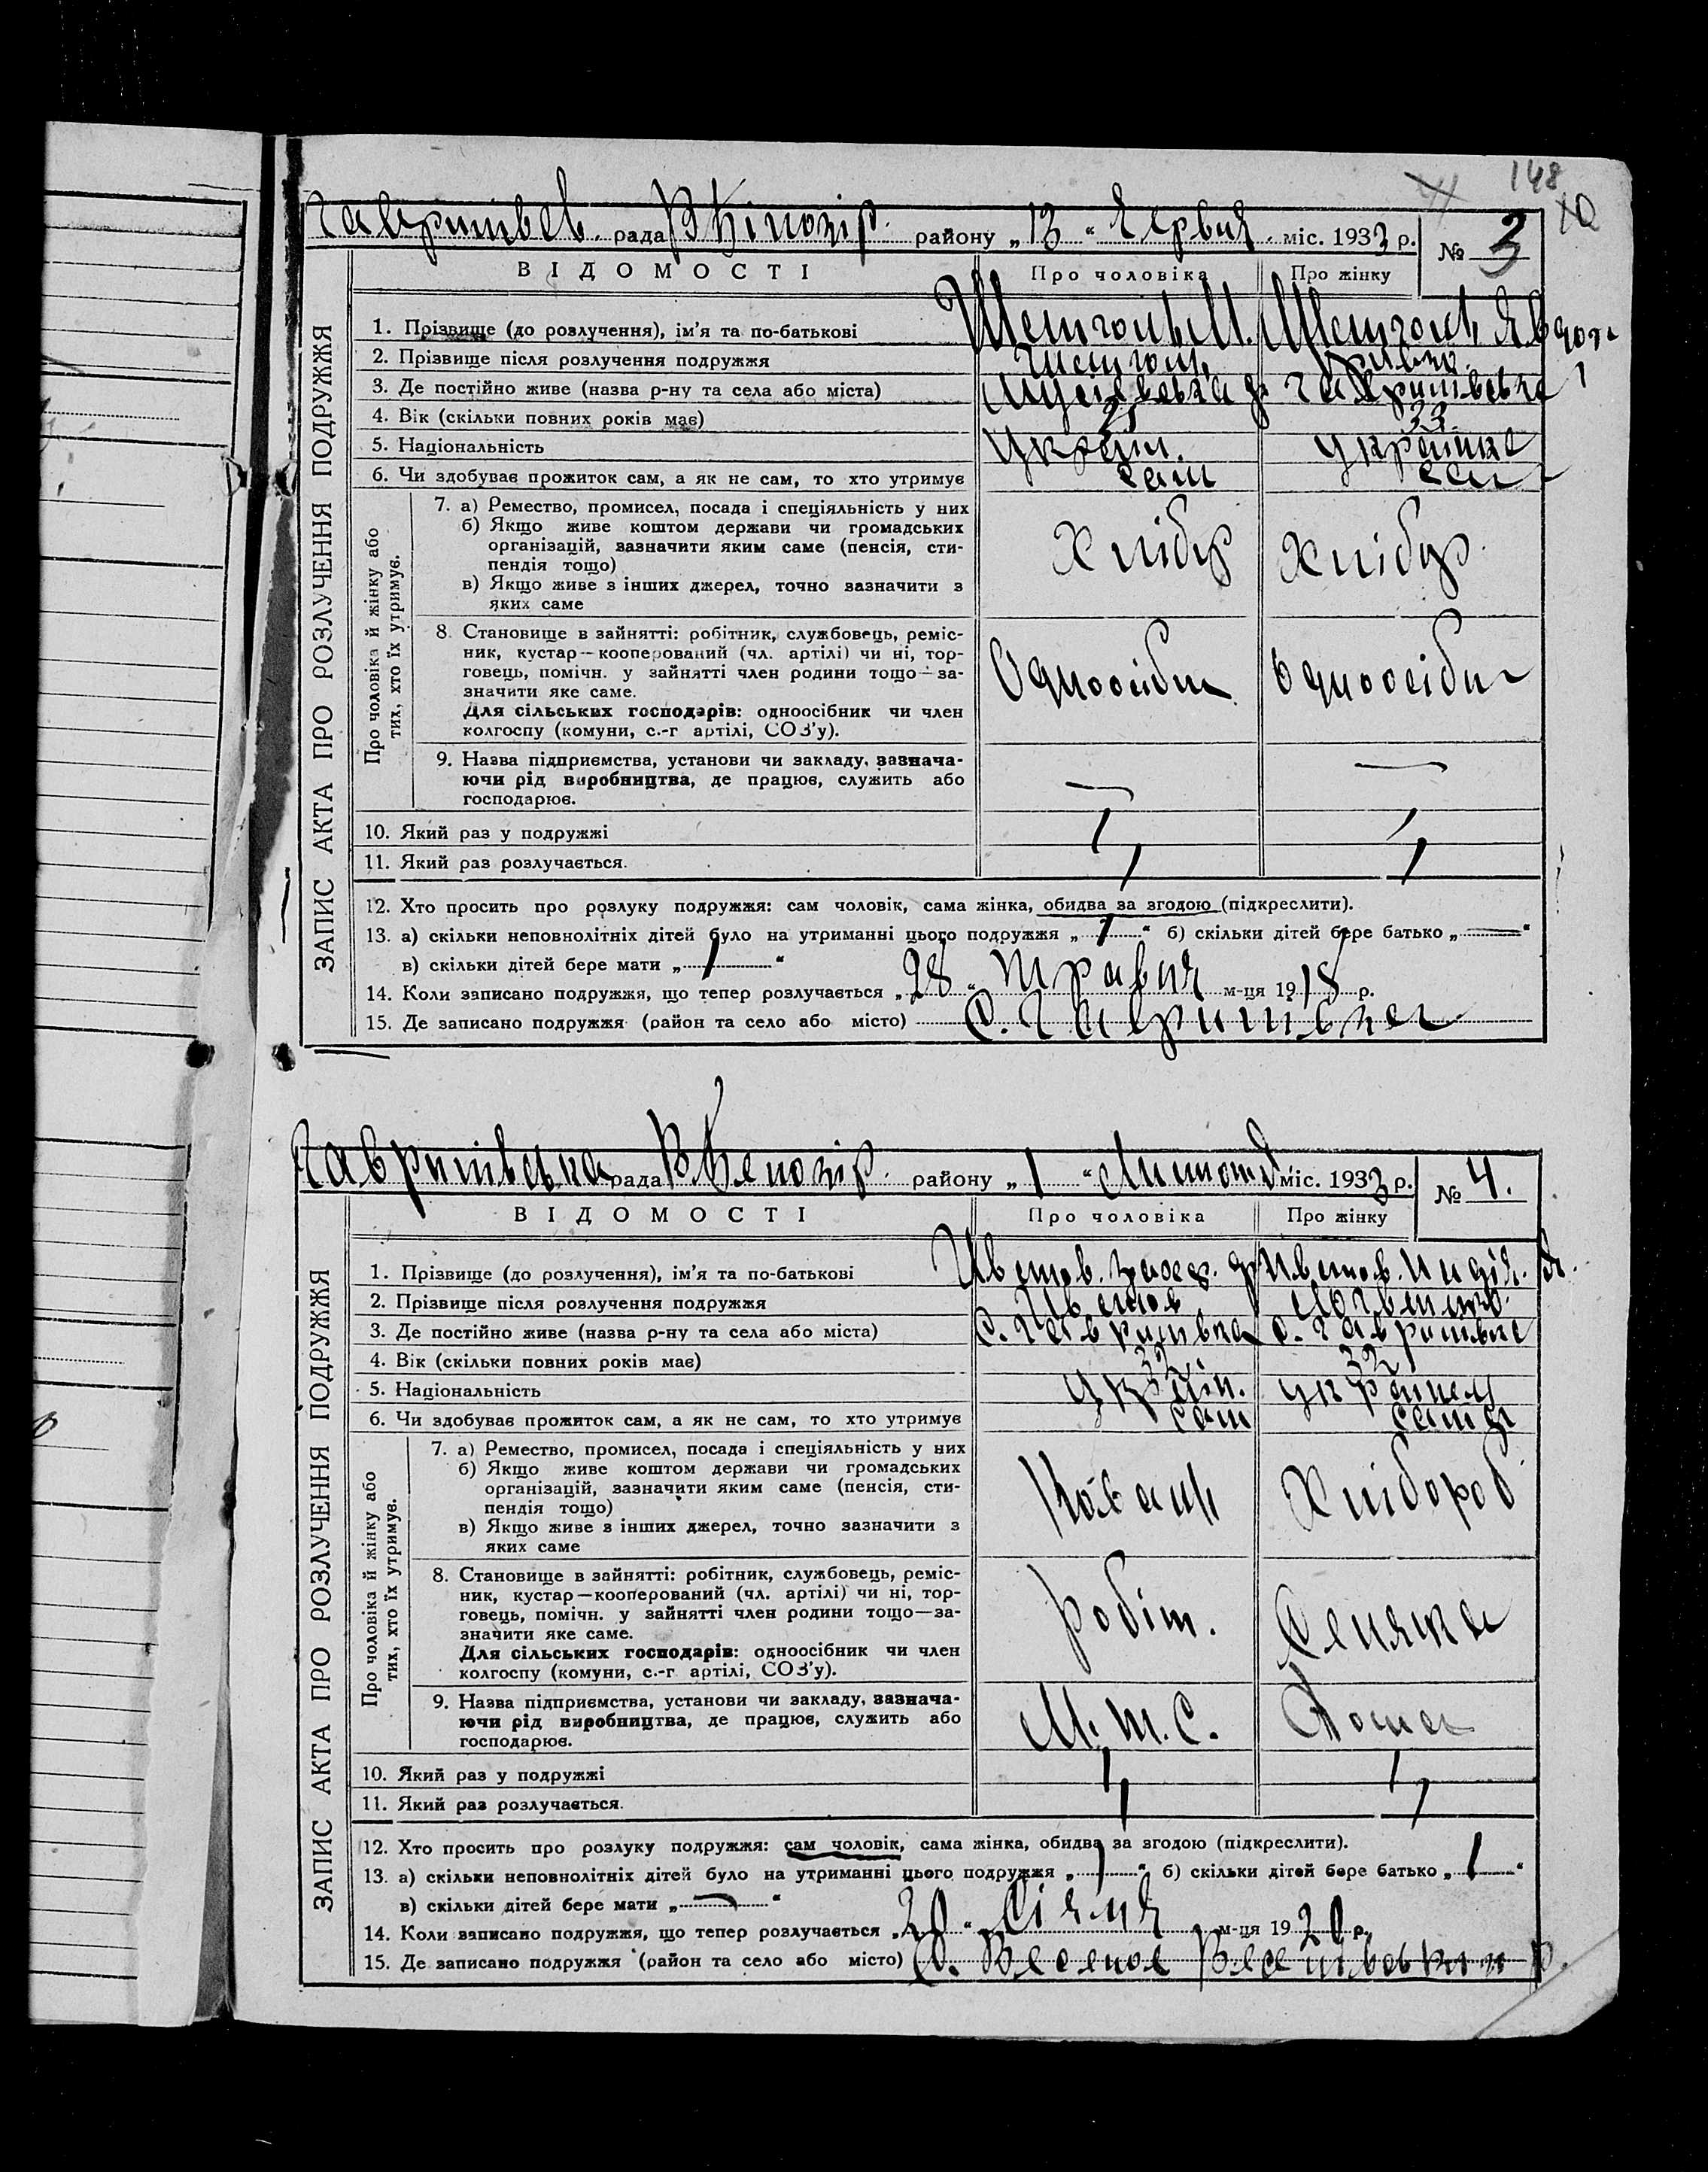 148
рада району „13“ Червня міс. 1933 р. № 3
ВІДОМОСТІ Про чоловіка Про жінку
ЗАПИС АКТА ПРО РОЗЛУЧЕННЯ ПОДРУЖЖЯ
1. Прізвище (до розлучення), ім’я та по-батькові
2. Прізвище після розлучення подружжя
3. Де постійно живе (назва р-ну та села або міста)
4. Вік (скільки повних років має) 33
5. Національність Україн. українка
6. Чи здобуває прожиток сам, а як не сам, то хто утримує сам
Про чоловіка й жінку або
тих, хто їх утримує.
7. а) Ремество, промисел, посада і спеціяльність у них
б) Якщо живе коштом держави чи громадських
організацій, зазначити яким саме (пенсія, сти-
пендія тощо) Хлібор Хлібор
в) Якщо живе з інших джерел, точно зазначити з
яких саме
8. Становище в зайнятті: робітник, службовець, реміс-
ник, кустар—кооперований (чл. артілі) чи ні, тор-
говець, помічн. у зайнятті член родини тощо—за-
значити яке саме.
Для сільських господарів: одноосібник чи член
колгоспу (комуни, с.-г артілі, СОЗ’у).
9. Назва підприємства, установи чи закладу, зазнача-
ючи рід виробництва, де працює, служить або
господарює. — —
10. Який раз у подружжі 1 1
11. Який раз розлучається. 1 1
12. Хто просить про розлуку подружжя: сам чоловік, сама жінка, обидва за згодою (підкреслити).
13. а) скільки неповнолітніх дітей було на утриманні цього подружжя „1“ б) скільки дітей бере батько „—“
в) скільки дітей бере мати „1“
14. Коли записано подружжя, що тепер розлучається „28“ Травня м-ця 1918 р.
15. Де записано подружжя (район та село або місто) С. Гавришівка
Гавришівська рада району „1“ міс. 1933 р. № 4.
ВІДОМОСТІ Про чоловіка Про жінку
ЗАПИС АКТА ПРО РОЗЛУЧЕННЯ ПОДРУЖЖЯ
1. Прізвище (до розлучення), ім’я та по-батькові
2. Прізвище після розлучення подружжя
3. Де постійно живе (назва р-ну та села або міста) с. Гавришівка с. Гавришівка
4. Вік (скільки повних років має) 32 32
5. Національність Україн. українка
6. Чи здобуває прожиток сам, а як не сам, то хто утримує сам сама
Про чоловіка й жінку або
тих, хто їх утримує.
7. а) Ремество, промисел, посада і спеціяльність у них
б) Якщо живе коштом держави чи громадських
організацій, зазначити яким саме (пенсія, сти-
пендія тощо) Коваль Хлібороб
в) Якщо живе з інших джерел, точно зазначити з
яких саме
8. Становище в зайнятті: робітник, службовець, реміс-
ник, кустар—кооперований (чл. артілі) чи ні, тор-
говець, помічн. у зайнятті член родини тощо—за-
значити яке саме. робіт. Селянка
Для сільських господарів: одноосібник чи член
колгоспу (комуни, с.-г артілі, СОЗ’у).
9. Назва підприємства, установи чи закладу, зазнача-
ючи рід виробництва, де працює, служить або
господарює. М.Т.С. Дома
10. Який раз у подружжі 1 1
11. Який раз розлучається. 1 1
12. Хто просить про розлуку подружжя: сам чоловік, сама жінка, обидва за згодою (підкреслити).
13. а) скільки неповнолітніх дітей було на утриманні цього подружжя „1“ б) скільки дітей бере батько „1“
в) скільки дітей бере мати „—“
14. Коли записано подружжя, що тепер розлучається „20“ Січня м-ця 1920 р.
15. Де записано подружжя (район та село або місто) С. Веселое